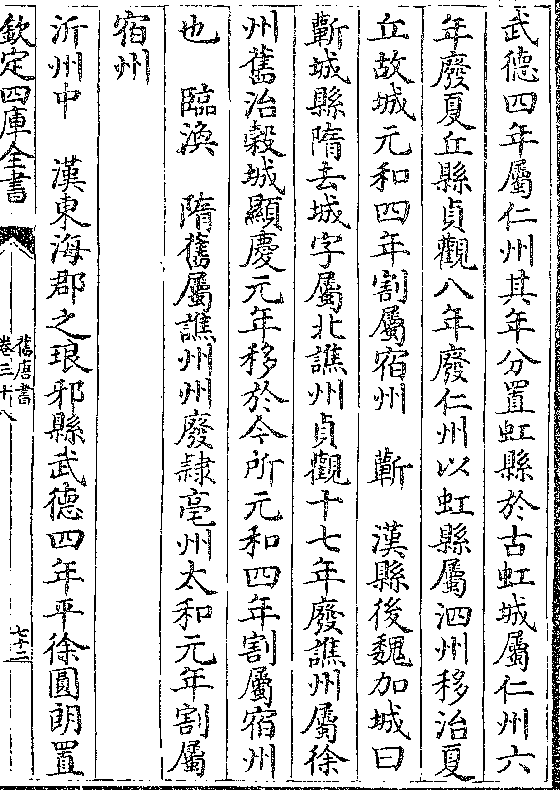 武德四年屬仁州其年分置虹縣於古虹城屬仁州六
年廢夏丘縣貞觀八年廢仁州以虹縣屬泗州移治夏
丘故城元和四年割屬宿州　蘄　漢縣後魏加城曰
蘄城縣隋去城字屬北譙州貞觀十七年廢譙州屬徐
州舊治穀城顯慶元年移於今所元和四年割屬宿州
也　臨渙　隋舊屬譙州州廢隷亳州太和元年割屬
宿州
沂州中　漢東海郡之琅邪縣武德四年平徐圓朗置
欽定四庫全書
舊唐書
卷三十八
七十二